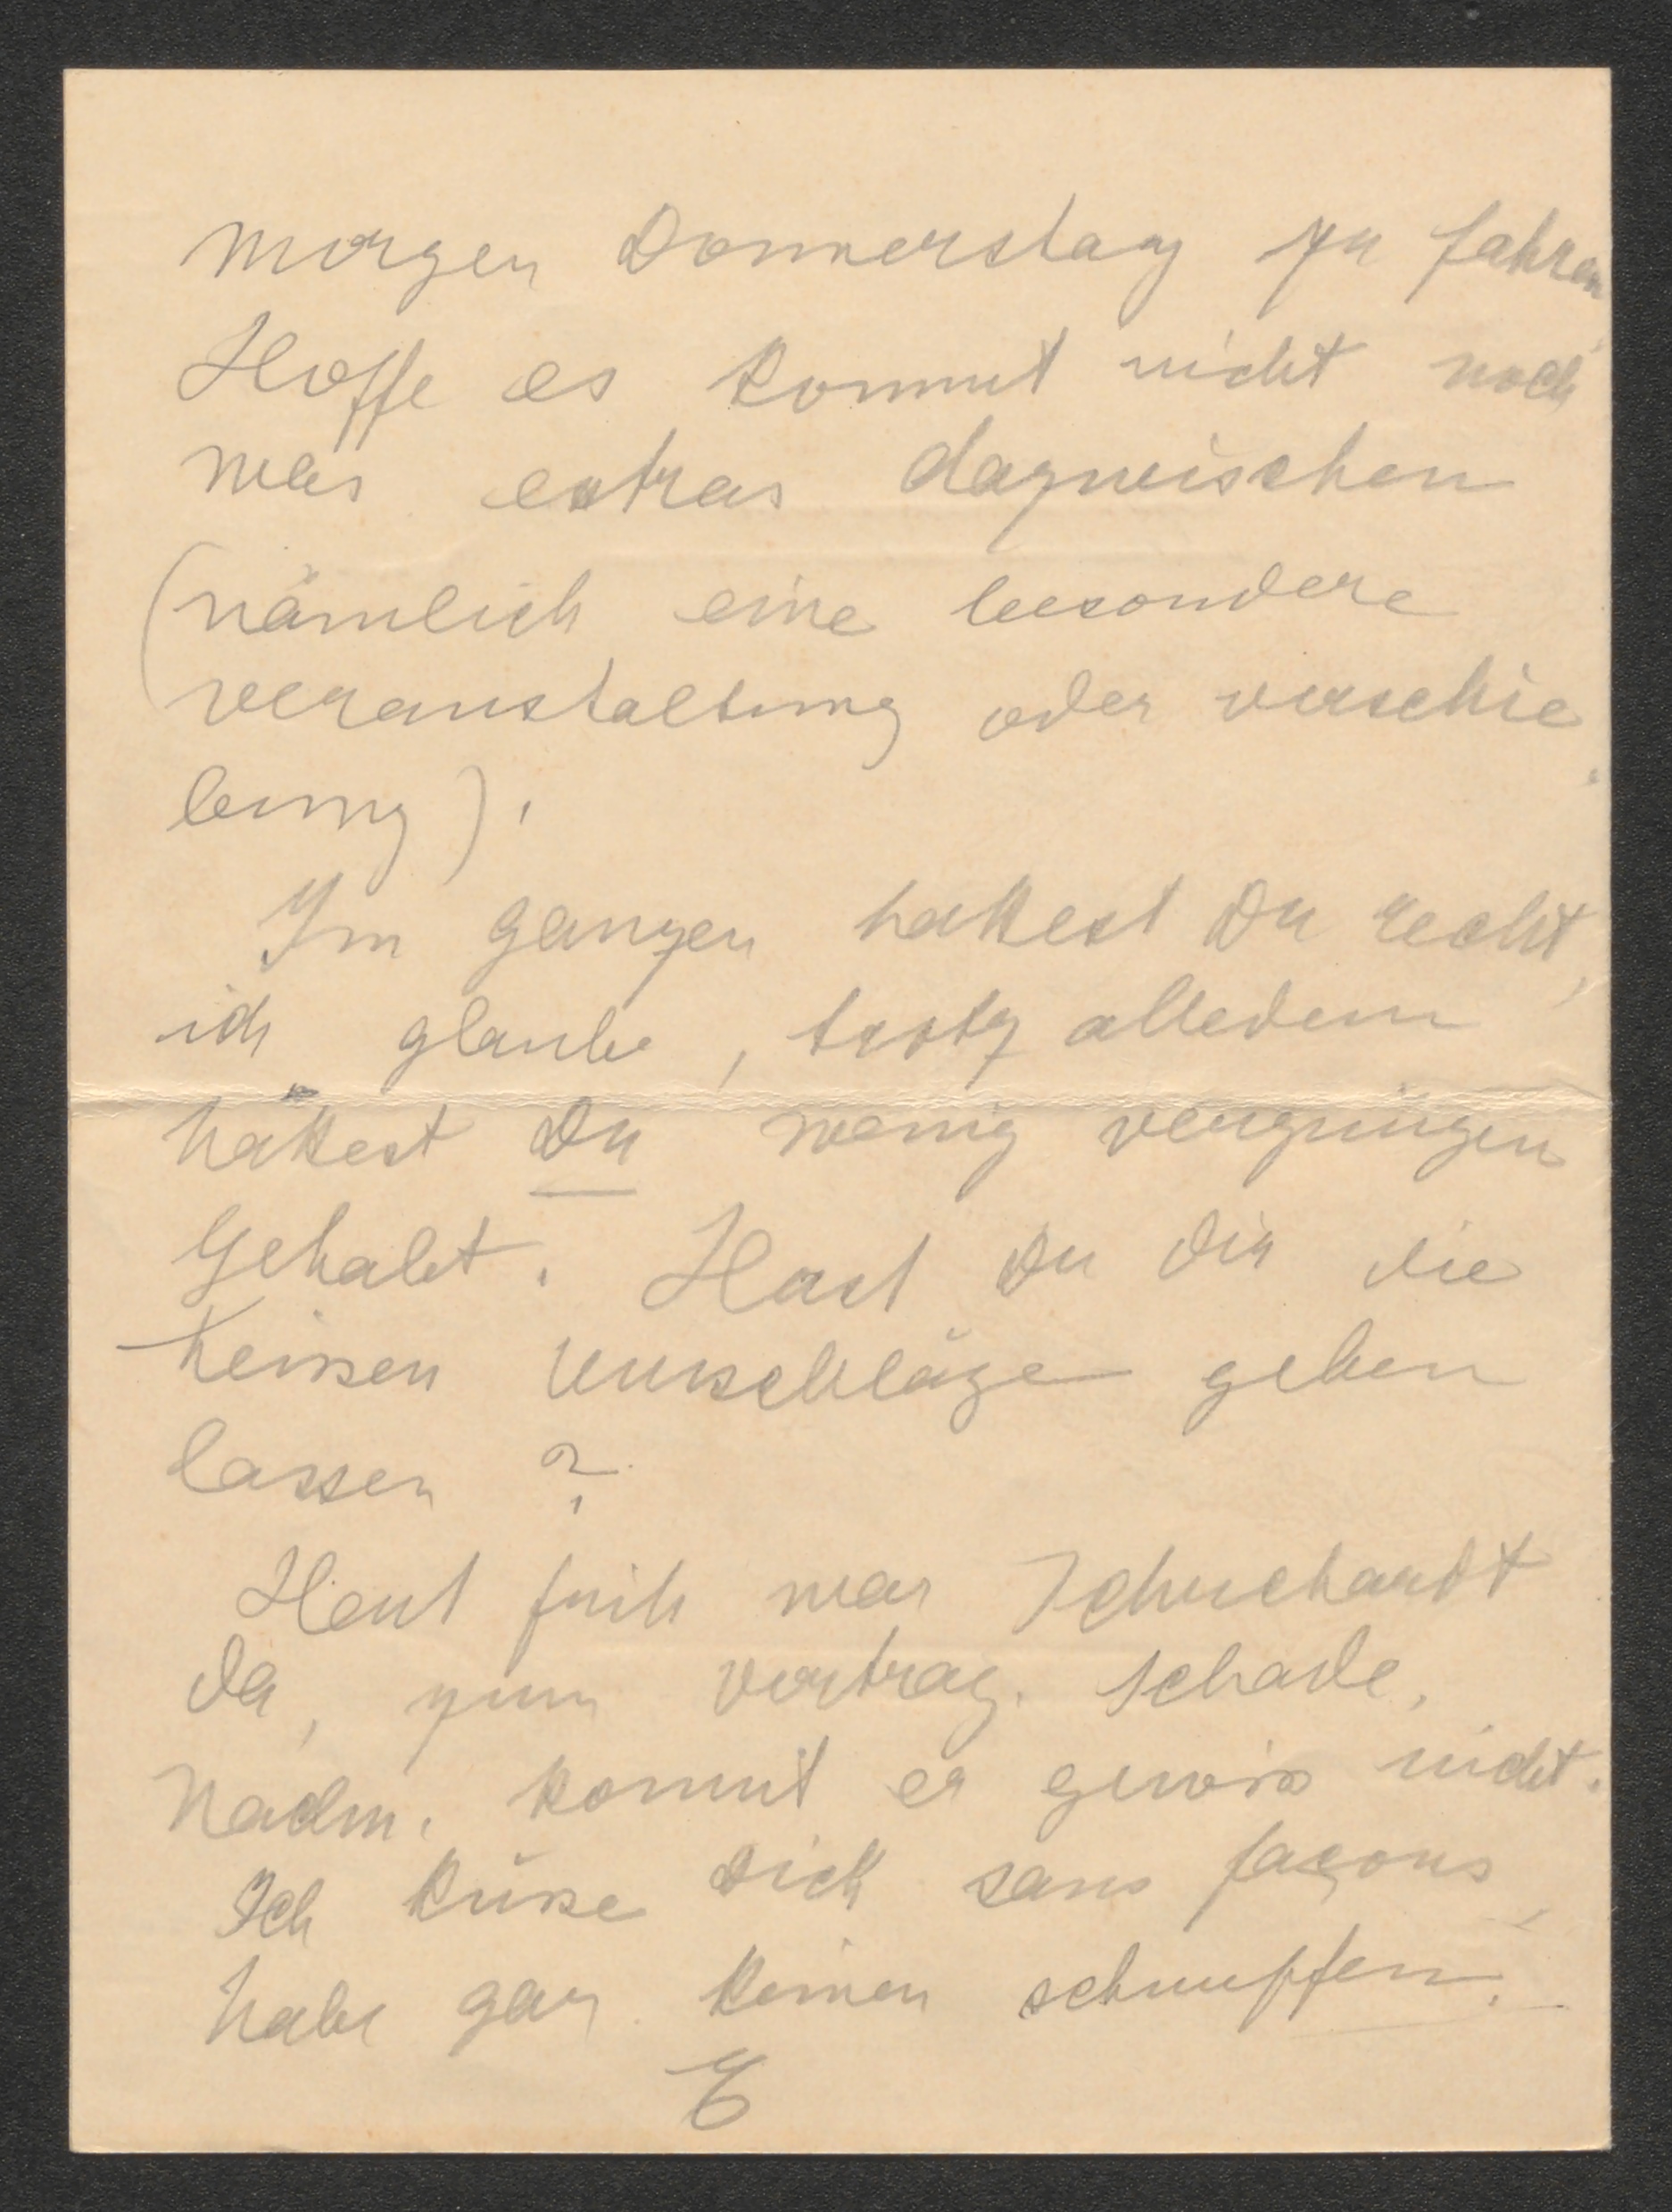 morgen Donnerstag zu fahren
Hoffe es kommt nicht noch
was extras dazwischen
(nämlich eine besondere
veranstaltung oder verschie
bung).
Im ganzen hattest Du recht,
ich glaube, trotz alledem
hättest Du wenig vergnügen
gehabt. Hast Du Dir die
heissen Umschläge geben
lassen?
Heut früh war Schuchardt
da, zum Vortrag. Schade,
Nachm. kommt er gewiss nicht.
Ich küsse Dich sans façons,
habe gar keinen schnupfen.
E